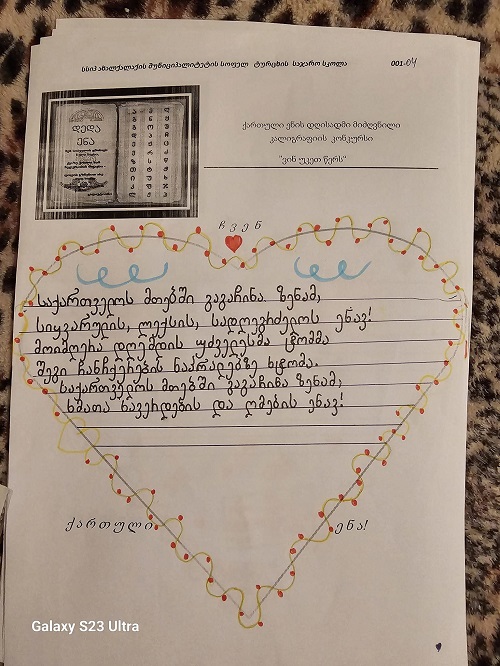 სსიპ ახალქალაქის მუნიციპალიტეტის სოფელ ტურცხის საჯარო სკოლა 001-04
დედა
ენა
ქართული ენის დღისადმი მიძღვნილი
კალიგრაფიის კონკურსი
"ვინ უკეთ წერს"
ჩვენ
საქართველოს მთებში გაგაჩინა ზენამ,
სიყვარულის, ლექსის, სადღეგრძელოს ენავ!
მოიმღერა დღემდის უძველესმა ტომმა
შენი ჩანჩქერების ნაპრალებზე ხტომა.
საქართველოს მთებში გაგაჩინა ზენამ,
ხმათა ხავერდების და ღმების ენავ!
ქართული ენა!
Galaxy S23 Ultra